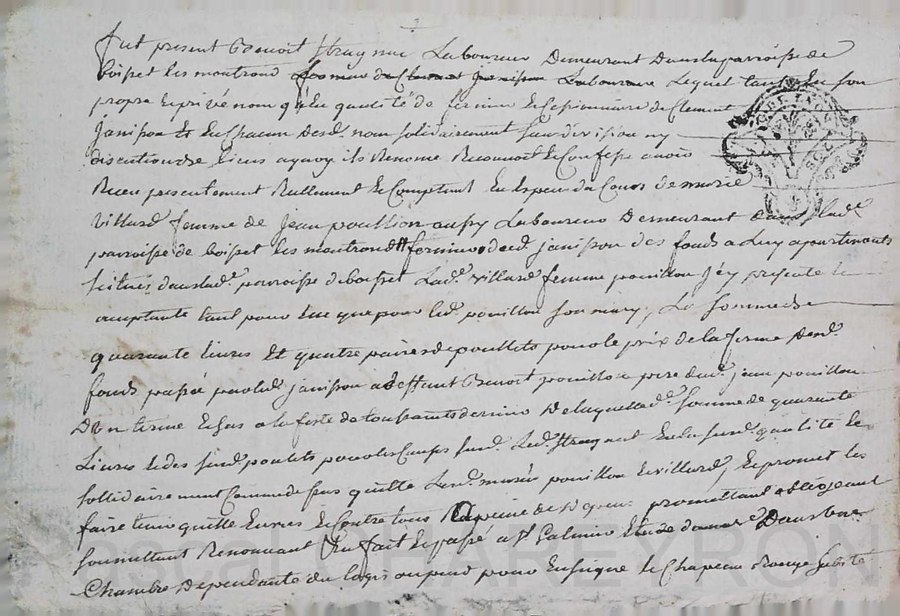 fut present Benoit Laboureur Demeurant Dans la parroisse de
boisset les montrond Lequel tant En son
propre Et privé nom qu'En qualité de fermier Et Cessionnaire de Clement
Janisson Et En Chacun desd. nom sollidairement sans division ny
discution de biens a quoy ils Renonce Reconnoit Et Confesse avoir
Receu presentement Reellement Et Comptant En Espece du Cours de marie
villard femme de Jean pouillon aussy Laboureur Demeurant dans lad.e
parroisse de boisset les montrond fermier dud. janisson des fonds a Luy apartenants
situés dans lad.e parroisse de boisset Lad.e villard femme pouillon Icy presente Et
acceptante tant pour Elle que pour led. pouillon son mary, La Somme de
quarante livres Et quatre paires de poullets pour le prix de la ferme desd.
fonds passée par led. janisson a deffunt Benoit pouillon pere dud. jean pouillon
D'Un terme Echus a la feste de toussaints dernier De laquelle lad.e somme de quarante
Livres Et des susd. poulets pour le Temps susd. Led. En la susd. qualité Et
sollidairement Comme dessus quitte Lesd. mariés pouillon Et villard, Et promet les
faire tenir quitte Envers Et Contre tous a peine de promettant obligeant
soumettant Renonceant fait Et passé a St Galmier Dans Une
Chambre Dependante du logis ou pend pour Enseigne le Chapeau Rouge